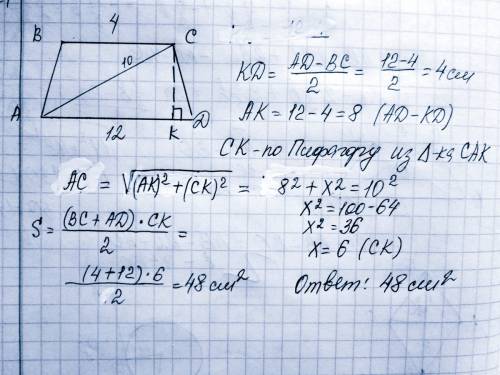 B 4 C
10
A 12 K D
KD = (AD-BC)/2 = (12-4)/2 = 4 см
AK = 12-4 = 8 (AD-KD)
CK - по Пифагору из Δ-ка CAK
AC = √((AK)²+(CK)²) = 8²+x² = 10²
x² = 100-64
x² = 36
x = 6 (CK)
S = ((BC+AD)·CK)/2 =
((4+12)·6)/2 = 48 см²
Ответ: 48 см²